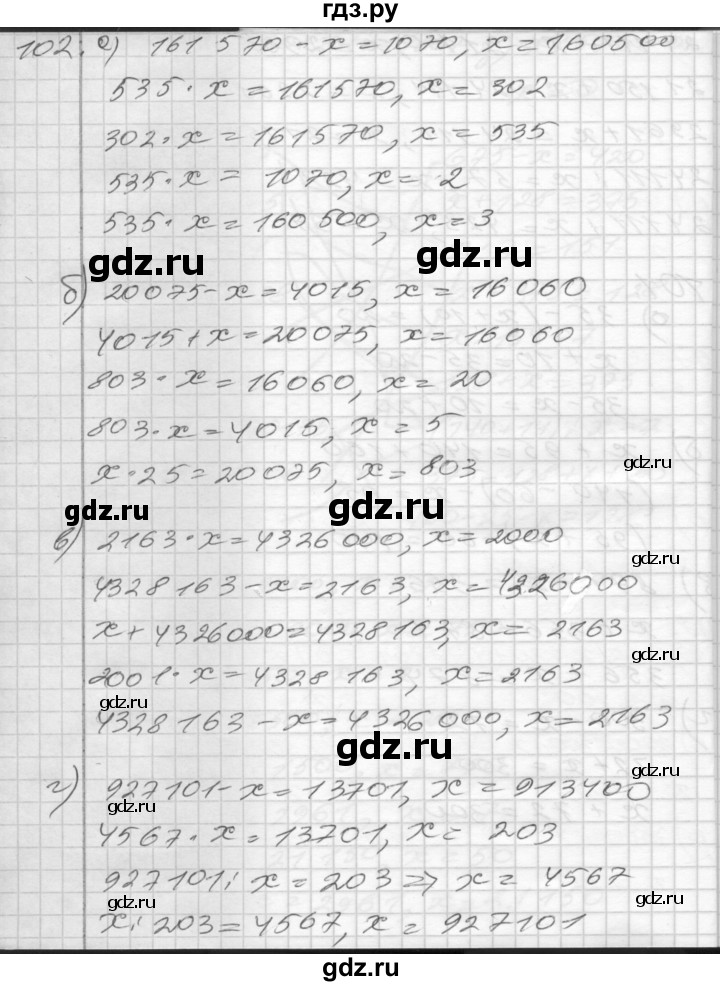 гдз.ру
102. а) 161 570 - x = 1070, x = 160500
535 · x = 161570, x = 302
302 · x = 161570, x = 535
535 · x = 1070, x = 2
535 · x = 160 500, x = 3
gdz.ru gdz.ru
б) 20075 - x = 4015, x = 16060
4015 + x = 20075, x = 16060
803 · x = 16060, x = 20
803 · x = 4015, x = 5
gdz.ru
x · 25 = 20075, x = 803
gdz.ru gdz.ru
в) 2163 · x = 4326 000, x = 2000
gdz.ru
4328 163 - x = 2163, x = 4326000
x + 4326000 = 4328 163, x = 2163
gdz.ru
2001 · x = 4328 163, x = 2163
gdz.ru
4328 163 - x = 4326 000, x = 2163
gdz.ru
gdz.ru
г) 927101 - x = 13701, x = 913400
gdz.ru
4567 · x = 13701, x = 203
927101 : x = 203 => x = 4567
x : 203 = 4567, x = 927101
gdz.ru gdz.ru
gdz.ru